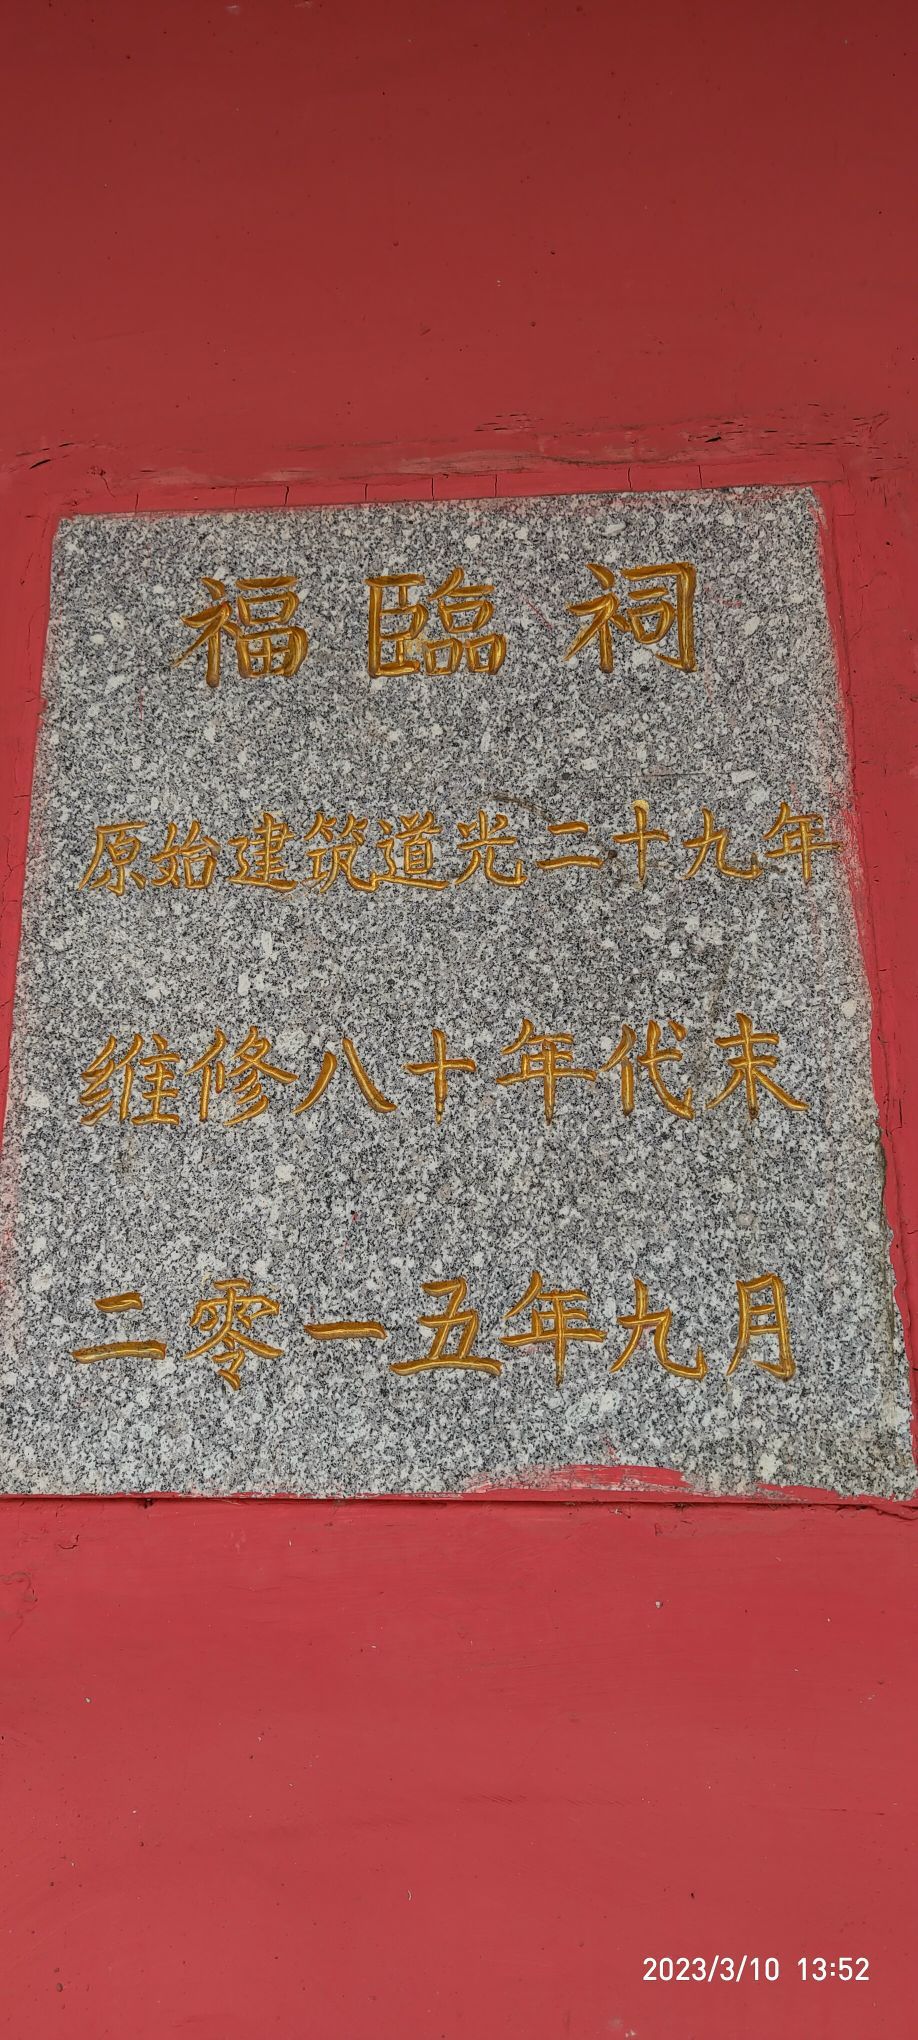 福臨祠
原始建筑道光二十九年
维修八十年代末
二零一五年九月
2023/3/10 13:52